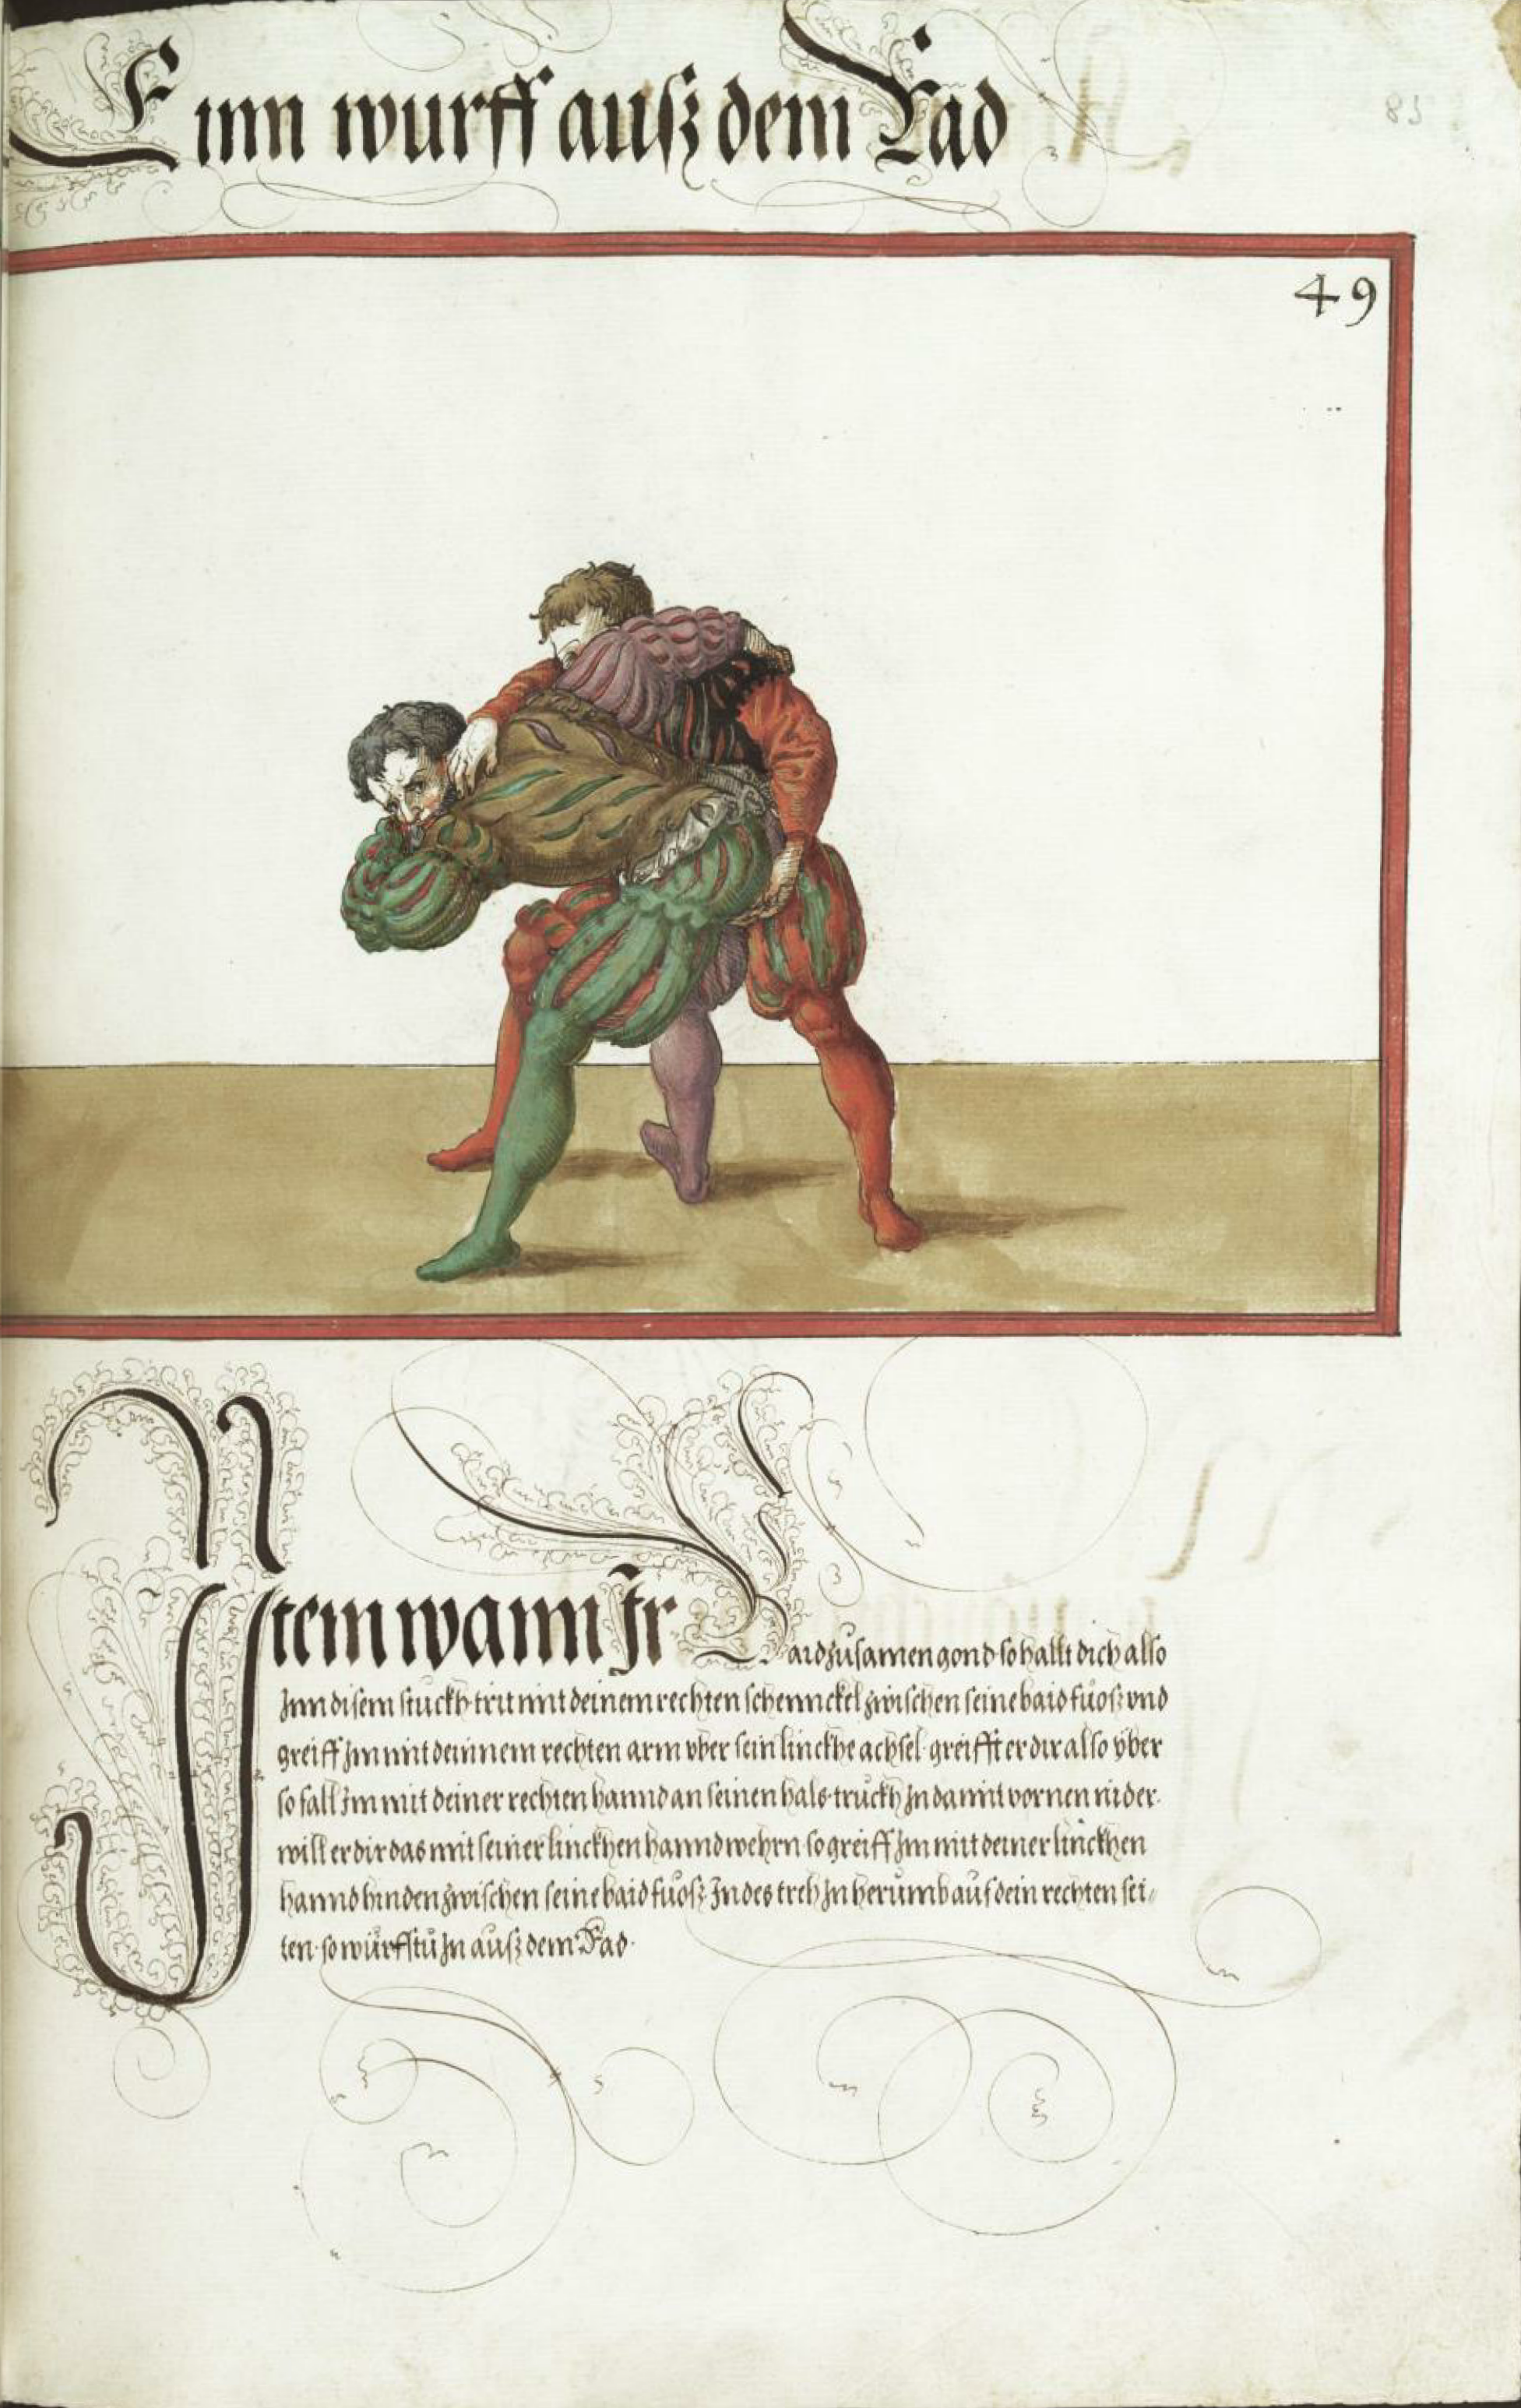 Einn wurff ausz dem Rad
83
49
Item wann Ir Baid zusamen gond so hallt dich also
Inn disem stuckh trit mit deinem rechten schennckel zwischen seine baid fuosz vnd
greiff Im mit deinnem rechten arm vber sein linckhe achsel greifft er dir also vber
so fall Im mit deiner rechten hannd an seinen hals truckh In damit vornen nider.
will er dir das mit seiner linckhen hannd wehrn so greiff Im mit deiner linckhen
hannd hinden zwischen seine baid fuosz Indes treh In herumb auf dein rechten sei-
ten so würfstu In ausz dem Rad.